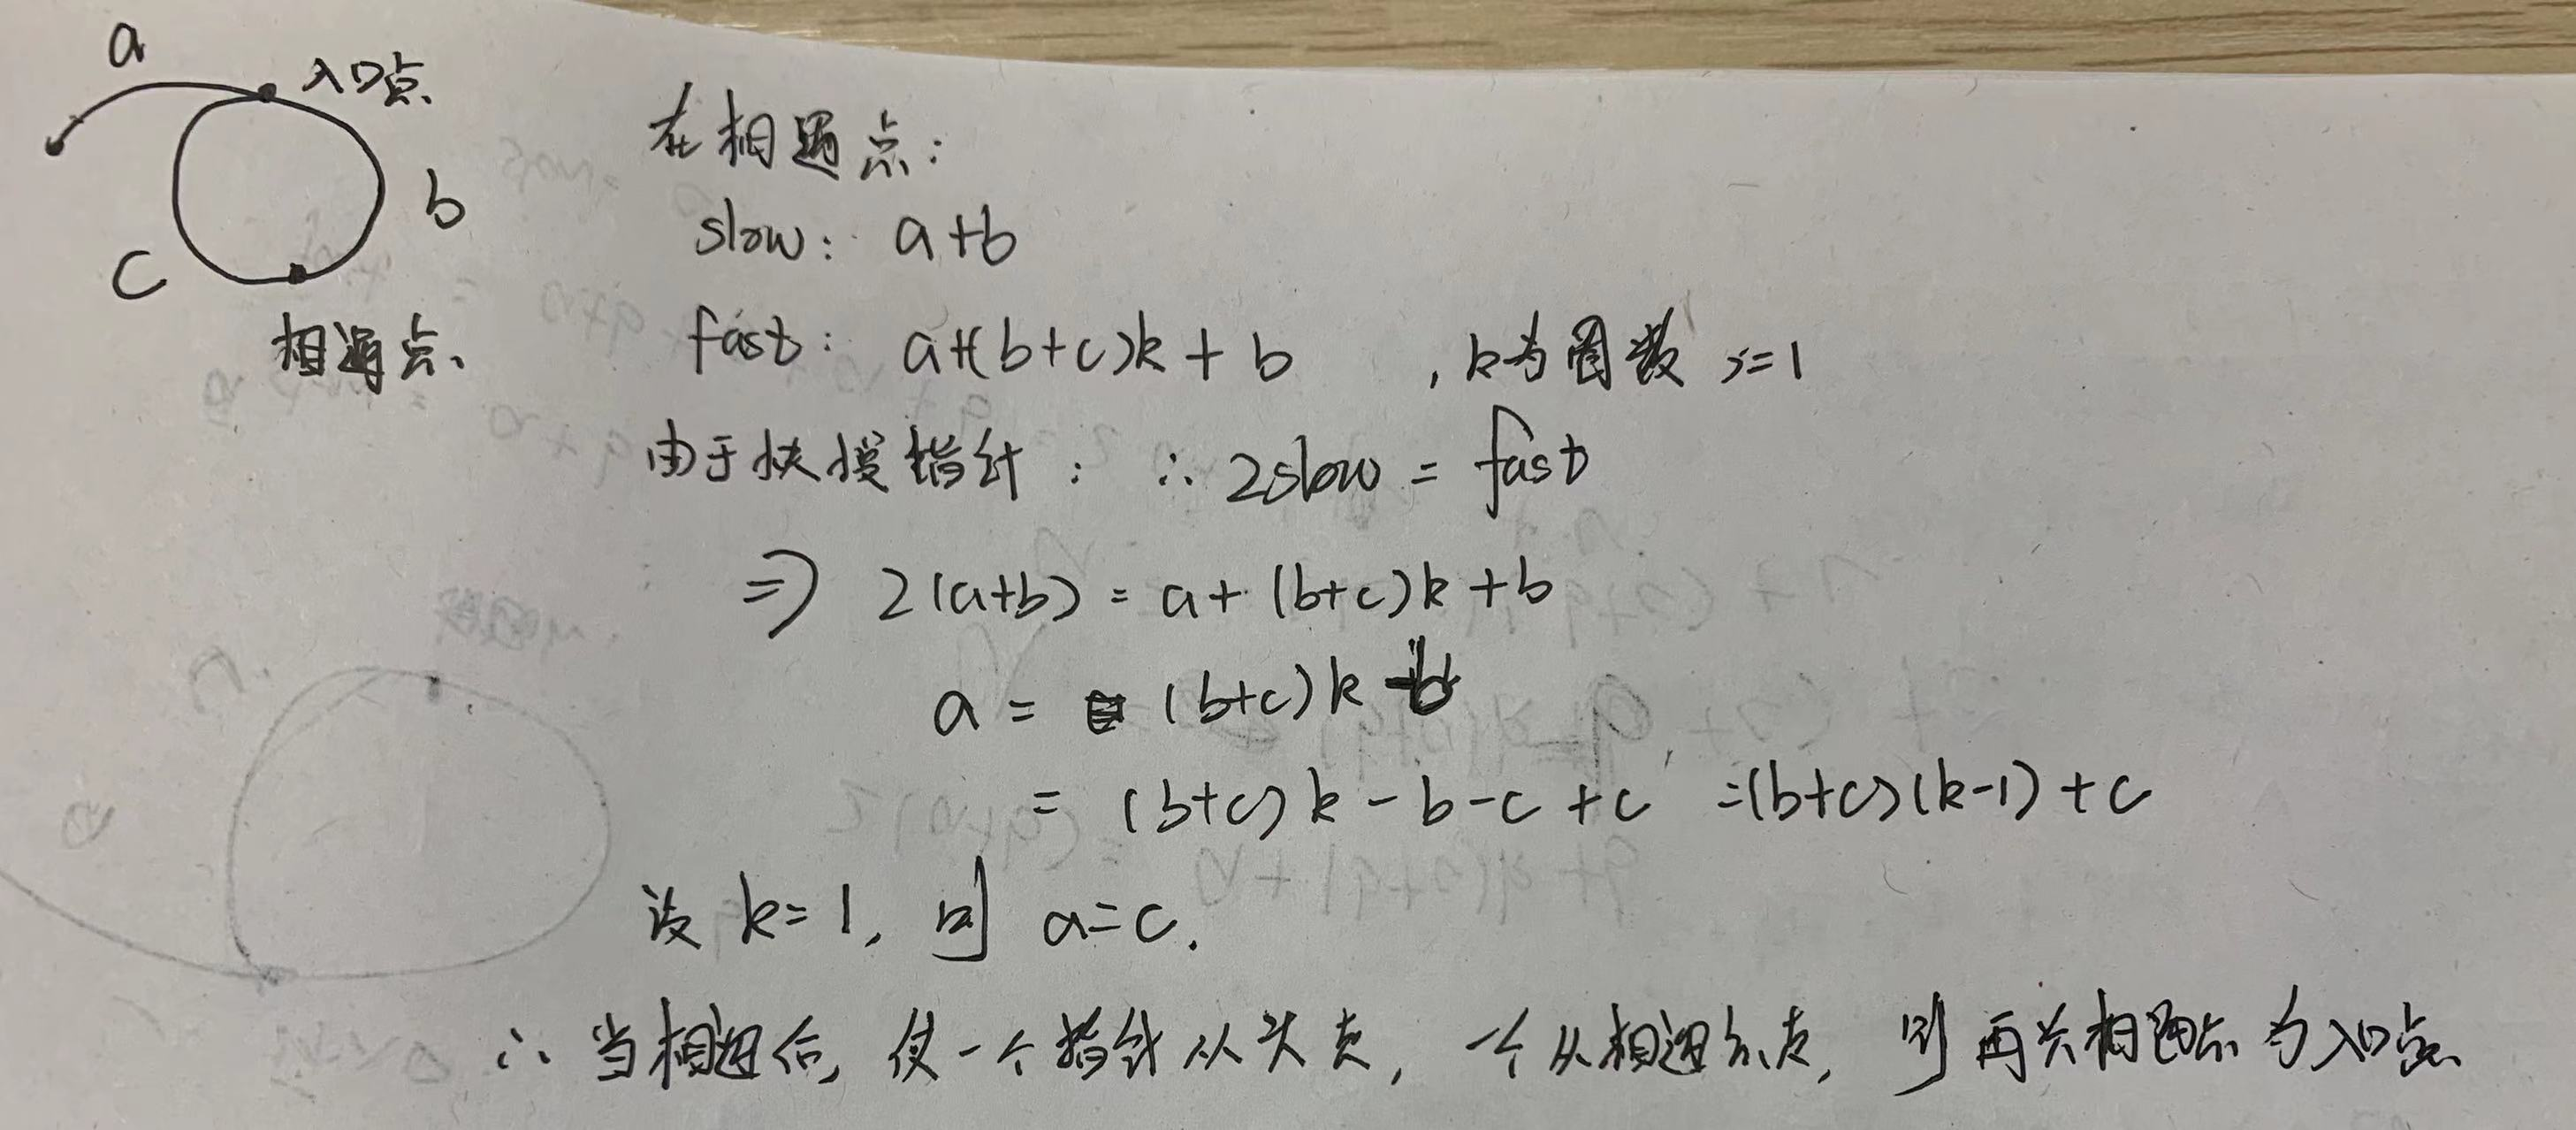 a
入口点
b
c
相遇点
在相遇点:
slow: a+b
fast: a+(b+c)k+b ,k为圈数 >=1
由于快慢指针: ∴ 2slow = fast
=> 2(a+b) = a+(b+c)k+b
a = (b+c)k-b
= (b+c)k-b-c+c =(b+c)(k-1)+c
设 k=1, 则 a=c.
∴ 当相遇后, 使一个指针从头走, 一个从相遇点走, 则再次相遇点为入口点